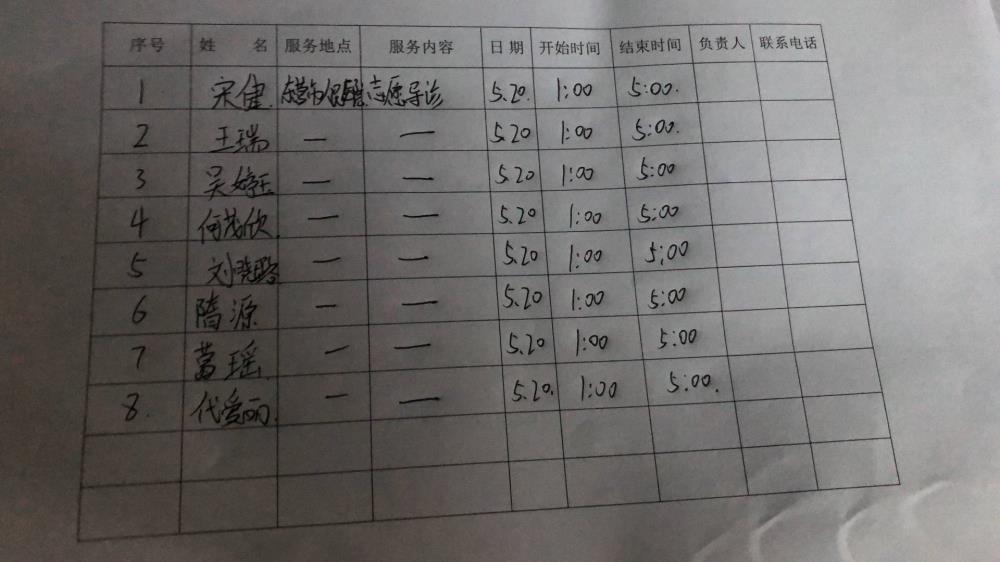 序号 姓 名 服务地点 服务内容 日期 开始时间 结束时间 负责人 联系电话
1 宋健. 志愿导诊 5.20. 1:00 5:00.
2 王瑞 — — 5.20 1:00 5:00.
3 吴婷玉 — — 5.20 1:00 5:00
4 何茂欣. — — 5.20 1:00 5:00
5 刘晓璐 — — 5.20 1:00 5:00
6 隋源 — — 5.20 1:00 5:00
7 葛瑶. — — 5.20 1:00 5:00
8. 代爱丽. — — 5.20. 1:00 5:00.